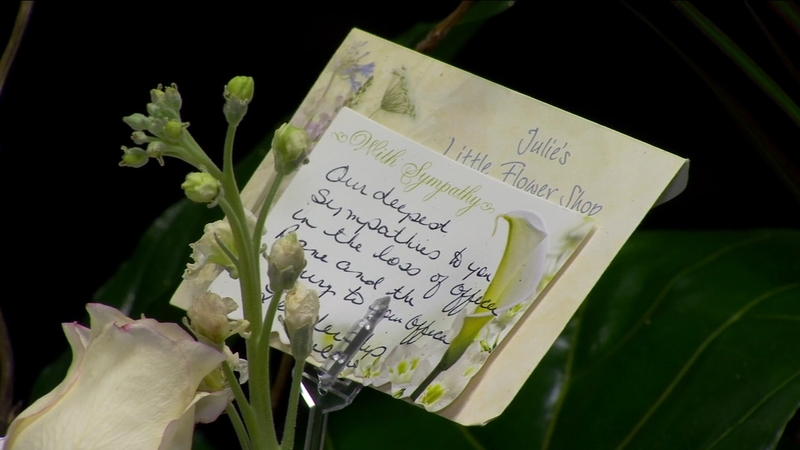 Julie's
Little Flower Shop
With Sympathy
Our deepest
Sympathies to you
in the loss of Officer
and the
to Officer